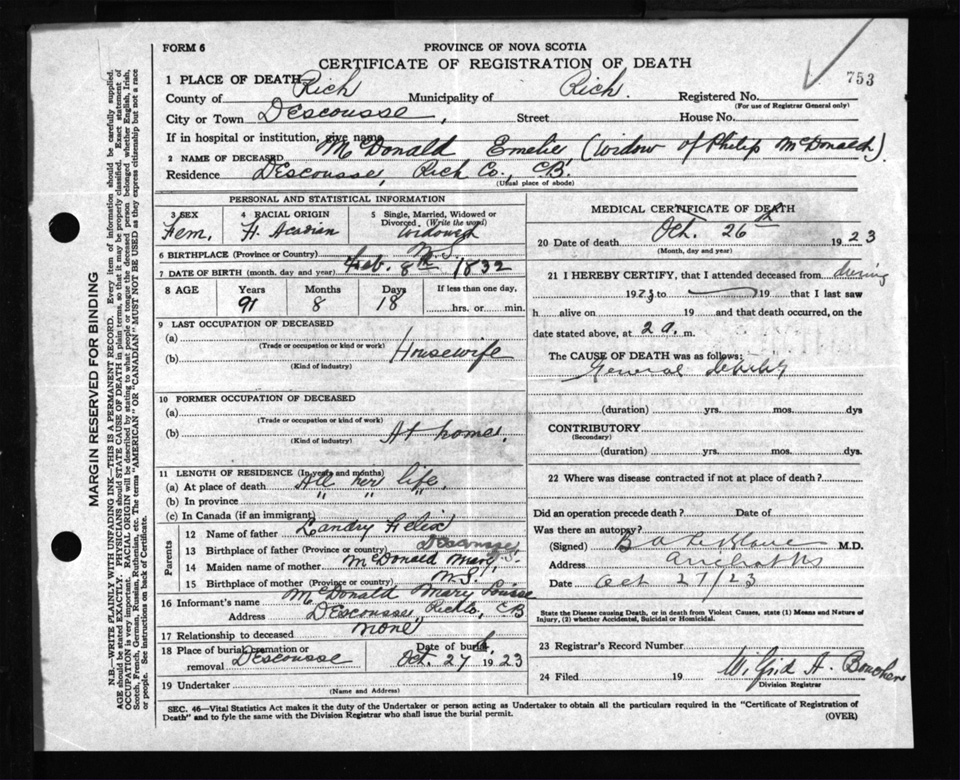 FORM 6
PROVINCE OF NOVA SCOTIA
753
CERTIFICATE OF REGISTRATION OF DEATH
1 PLACE OF DEATH
County of Rich Municipality of Rich. Registered No.
(For use of Registrar General only)
City or Town Descousse, Street House No.
If in hospital or institution, give name
2 NAME OF DECEASED McDonald Emelie (widow of Philip McDonald).
Residence Descousse, Rich Co., C.B.
(Usual place of abode)
PERSONAL AND STATISTICAL INFORMATION
3 SEX Fem.
4 RACIAL ORIGIN Acadian
5 Single, Married, Widowed or Divorced. (Write the word) Widowed
6 BIRTHPLACE (Province or Country) N.S.
7 DATE OF BIRTH (month, day and year) Feb. 8th 1832
8 AGE Years 91 Months 8 Days 18 If less than one day, hrs. or min.
9 LAST OCCUPATION OF DECEASED
(a)
(Trade or occupation or kind or work)
(b) Housewife
(Kind of industry)
10 FORMER OCCUPATION OF DECEASED
(a)
(Trade or occupation or kind of work)
(b) At home.
(Kind of industry)
11 LENGTH OF RESIDENCE (In years and months)
(a) At place of death All her life,
(b) In province " " "
(c) In Canada (if an immigrant)
Parents
12 Name of father Landry Felix
13 Birthplace of father (Province or country) Descousse, N.S.
14 Maiden name of mother McDonald Mary
15 Birthplace of mother (Province or country) N.S.
16 Informant's name McDonald Mary Louise
Address Descousse, Rich Co, CB
17 Relationship to deceased None
18 Place of burial, cremation or removal Descousse Date of burial Oct. 27 1923
19 Undertaker
(Name and Address)
MEDICAL CERTIFICATE OF DEATH
20 Date of death Oct. 26th 1923
(Month, day and year)
21 I HEREBY CERTIFY, that I attended deceased from during
1923 to 19 that I last saw
h alive on 19 and that death occurred, on the
date stated above, at 2 a. m.
The CAUSE OF DEATH was as follows:
General debility
(duration) yrs. mos. dys
CONTRIBUTORY
(Secondary)
(duration) yrs. mos. dys
22 Where was disease contracted if not at place of death?
Did an operation precede death? Date of
Was there an autopsy?
(Signed) M.D.
Address
Date Oct 27/23
State the Disease causing Death, or in death from Violent Causes, state (1) Means and Nature of
Injury, (2) whether Accidental, Suicidal or Homicidal.
23 Registrar's Record Number
24 Filed 19 Wilfrid A.
Division Registrar
SEC. 46—Vital Statistics Act makes it the duty of the Undertaker or person acting as Undertaker to obtain all the particulars required in the "Certificate of Registration of
Death" and to fyle the same with the Division Registrar who shall issue the burial permit.
(OVER)
MARGIN RESERVED FOR BINDING
N.B.—WRITE PLAINLY WITH UNFADING INK—THIS IS A PERMANENT RECORD. Every item of information should be carefully supplied.
AGE should be stated EXACTLY. PHYSICIANS should STATE CAUSE OF DEATH in plain terms, so that it may be properly classified. Exact statement of
OCCUPATION is very important. RACIAL ORIGIN will be described by stating to what people or tongue the deceased person belonged whether English, Irish,
Scotch, French, German, Russian, Ruthenian, etc. The terms "AMERICAN" OR "CANADIAN" MUST NOT BE USED as they express citizenship but not a race
or people. See instructions on back of Certificate.